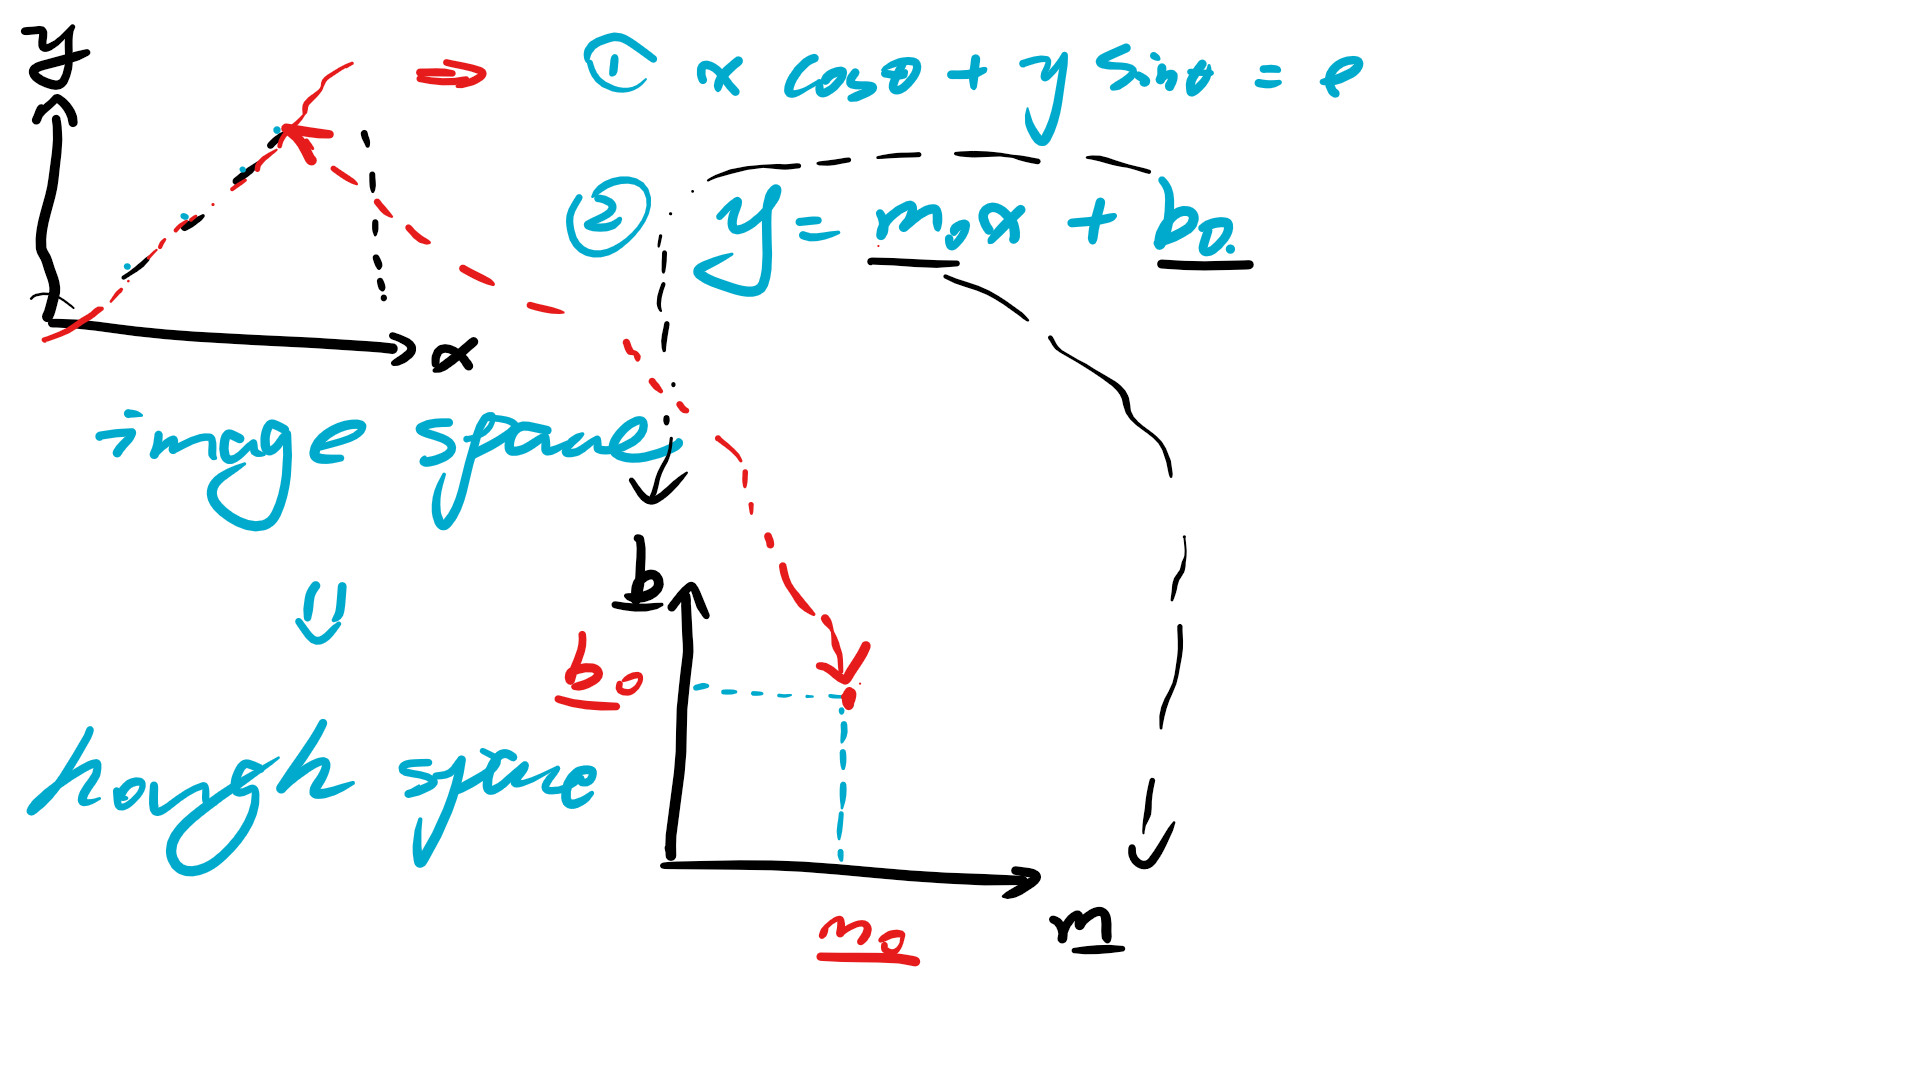 y
⇒ ① x cosθ + y sinθ = ρ
② y = m₀x + b₀
x
image space
⇓
b
b₀
hough space
m₀
m